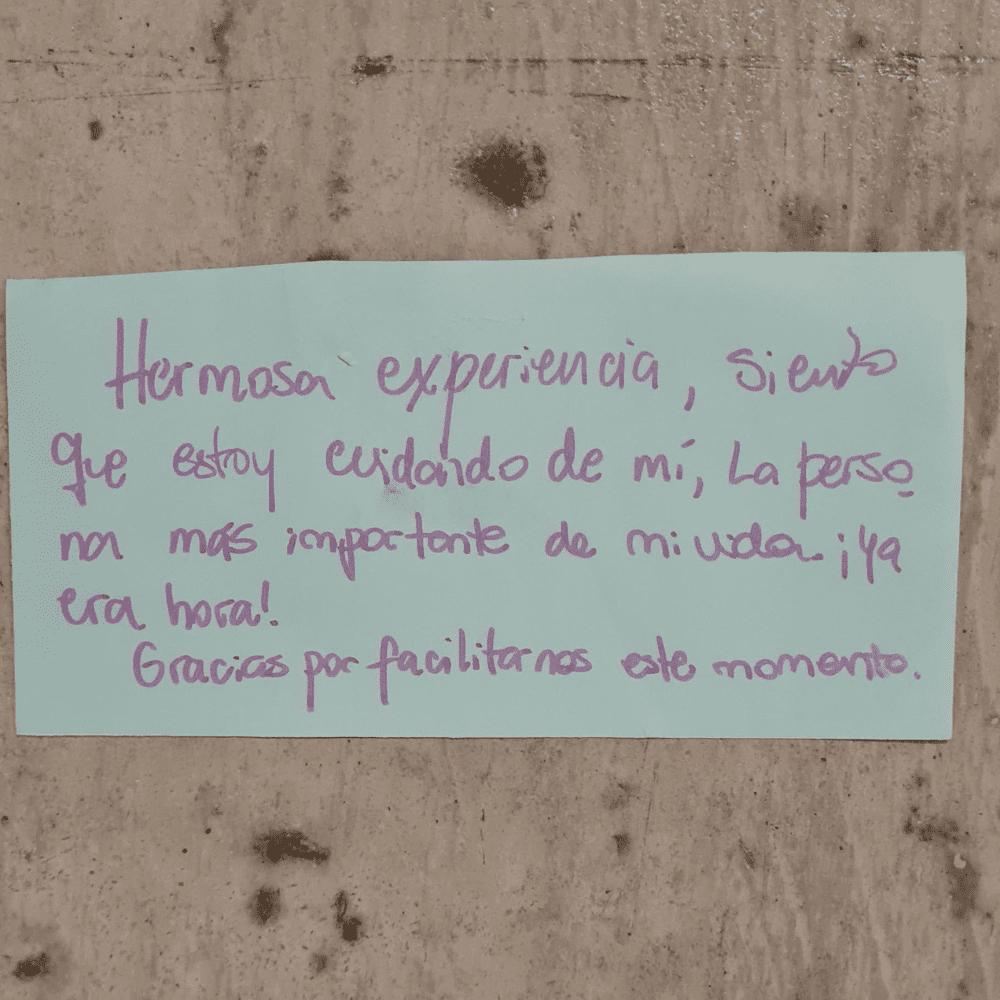 Hermosa experiencia, siento
que estoy cuidando de mí, La perso
na más importante de mi vida. ¡Ya
era hora!
Gracias por facilitarnos este momento.